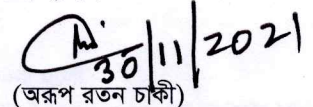 30/11/2021
(অরূপ রতন চাকী)